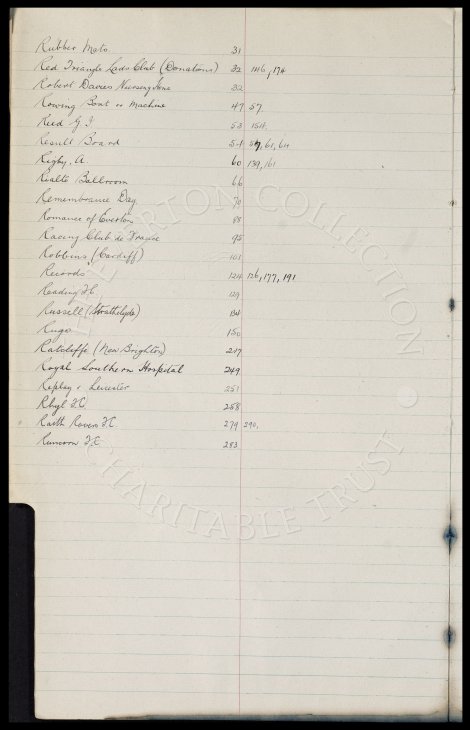 Rubber Mats 31
Red Triangle Lads Club (Donations) 32 146, 174
Robert Davies Nursing Home 32
Rowing Boat or Machine 47 57
Reed G.F. 53 154
Result Board 54 57, 61, 64
Rigby, A. 60 139, 161
Rialto Ballroom 66
Remembrance Day 70
Romance of Everton 88
Racing Club de France 95
Robbins (Cardiff) 101
Records 124 126, 177, 191
Reading F.C. 129
Russell (Strathclyde) 134
Rugs 150
Ratcliffe (New Brighton) 247
Royal Southern Hospital 249
Replay v Leicester 251
Rhyl F.C. 258
Raith Rovers F.C. 279 290,
Runcorn F.C. 283
THE EVERTON COLLECTION CHARITABLE TRUST